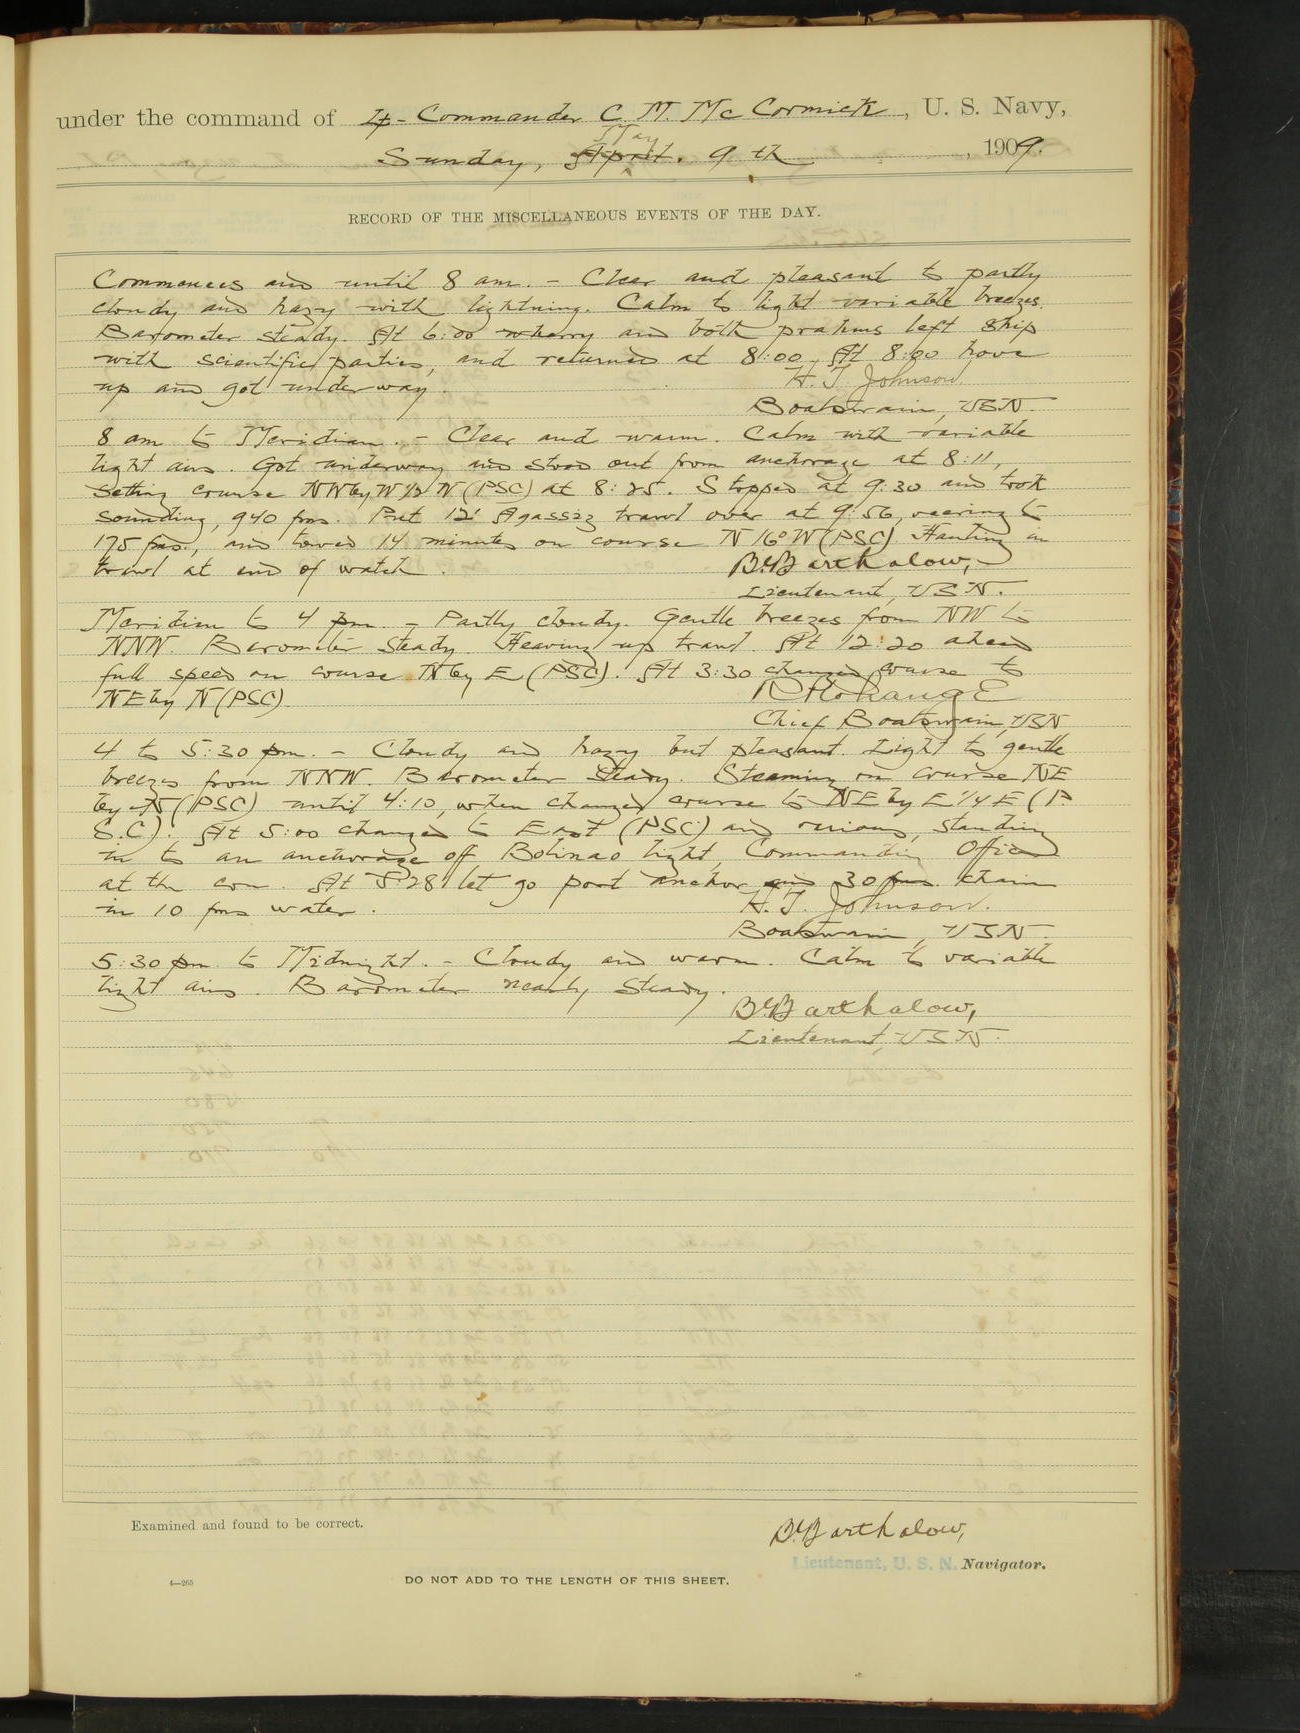 under the command of Lt-Commander C. M. McCormick, U. S. Navy,
May
Sunday, April. 9th, 1909.
RECORD OF THE MISCELLANEOUS EVENTS OF THE DAY.
Commences and until 8 am. - Clear and pleasant to partly
cloudy and hazy with lightning. Calm to light variable breezes.
Barometer steady. At 6:00 wherry and both prahms left ship
with scientific parties, and returned at 8:00. At 8:00 hove
up and got underway.
H. T. Johnson.
Boatswain, USN.
8 am to Meridian. - Clear and warm. Calm with variable
light airs. Got underway and stood out from anchorage at 8:11,
setting course NW by W 1/2 W (PSC) at 8:25. Stopped at 9:30 and took
sounding, 940 fms. Put 12' Agassiz trawl over at 9:56, veering to
175 fms., and towed 14 minutes on course N 16° W (PSC). Hauling in
trawl at end of watch.
Barthalow,
Lieutenant, USN.
Meridian to 4 pm. - Partly cloudy. Gentle breezes from NW to
NNW. Barometer steady. Heaving up trawl. At 12:20 ahead
full speed on course N by E (PSC). At 3:30 changed course to
NE by N (PSC).
Chief Boatswain, USN
4 to 5:30 pm. - Cloudy and hazy but pleasant. Light to gentle
breezes from NNW. Barometer steady. Steaming on course NE
by N (PSC) until 4:10, when changed course to NE by E 1/4 E (P.
S.C.). At 5:00 changed to East (PSC) and various, standing
in to an anchorage off Bolinao light, Commanding Officer
at the con. At 5:28 let go port anchor and 30 fms. chain
in 10 fms water.
H. T. Johnson.
Boatswain, USN.
5:30 pm to Midnight. - Cloudy and warm. Calm to variable
light airs. Barometer nearly steady.
Barthalow,
Lieutenant, USN.
Examined and found to be correct.
Barthalow,
Lieutenant, U. S. N. Navigator.
4—265
DO NOT ADD TO THE LENGTH OF THIS SHEET.